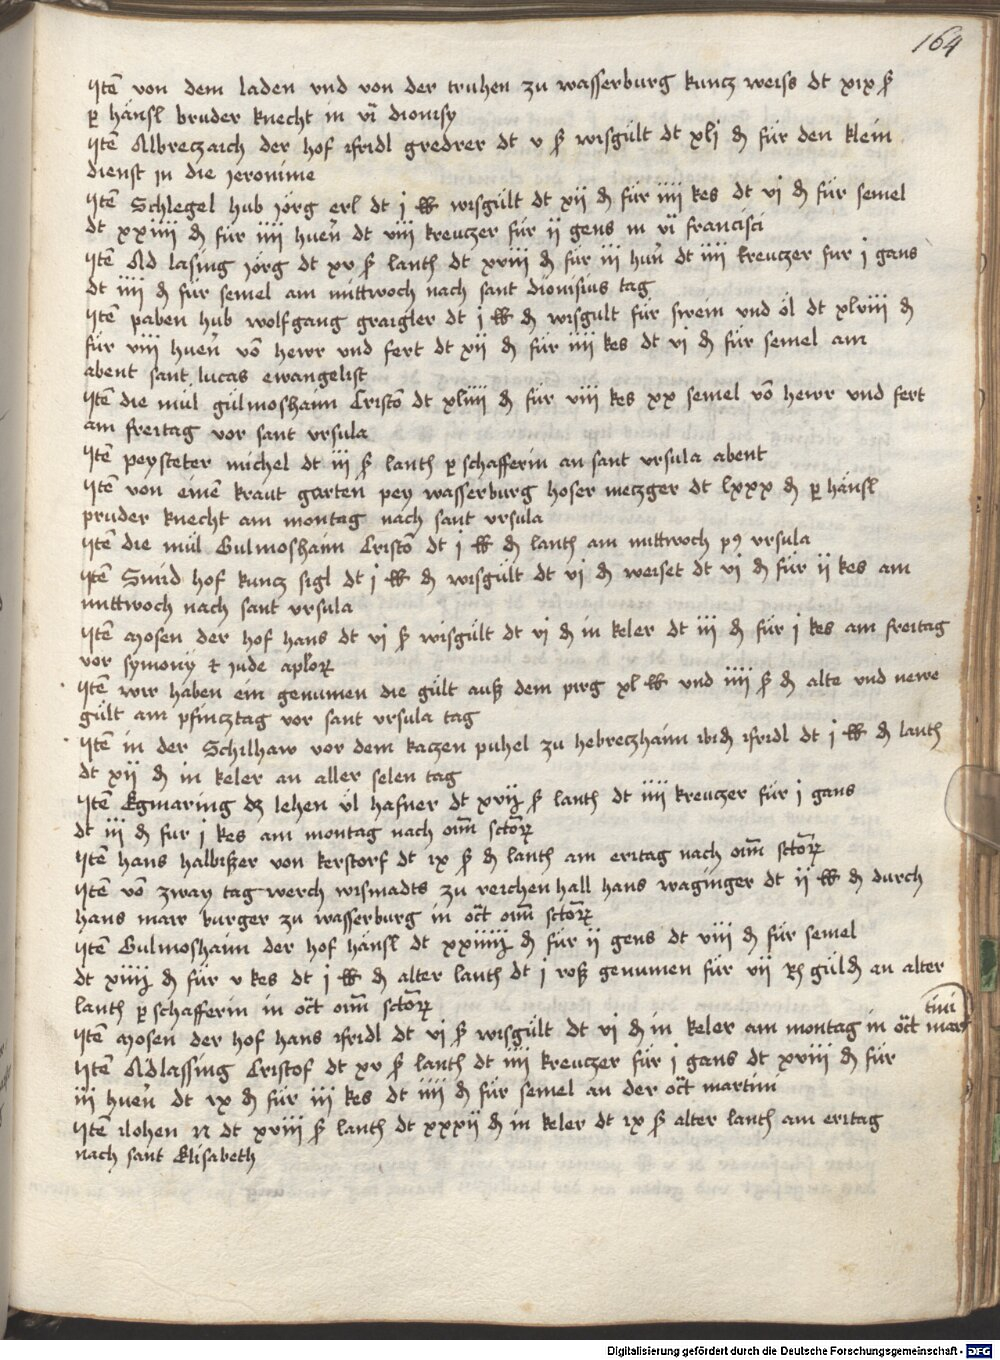 164
Jtẽ von dem laden vnd von der truhen zu wasserburg kuncz weiss dt xix ß
p hänsl bruder knecht in vi dionisy
Jtẽ Albreczaich der hof ffridl gredrer dt v ß wisgült dt xlj đ für den klein
dienst in die jeronime
Jtẽ Schlegel hub jörg erl dt j ℔ wisgült dt xii đ für iiii kes dt vi đ für semel
dt xxiiii đ für iiii huen̄ dt viii kreuczer für ii gens in vi francisci
Jtẽ Ad lasing jörg dt xv ß lanth dt xviii đ für iii hun̄ dt iiii kreuczer fur j gans
dt iiii đ für semel am mittwoch nach sant dionisius tag
Jtẽ paben hub wolfgang graigler dt j ℔ đ wisgult für swein vnd öl dt xlviii đ
für viii huen̄ võ hewr vnd fert dt xii đ für iiii kes dt vi đ für semel am
abent sant lucas ewangelist
Jtẽ die mül gülmoshaim Cristõ dt xliiii đ für viii kes xx semel võ hewr vnd fert
am freitag vor sant vrsula
Jtẽ peysteter michel dt iii ß lanth p schafferin an sant vrsula abent
Jtẽ von einẽ kraut garten pey wasserburg hoser meczger dt lxxx đ p hänsl
pruder knecht am montag nach sant vrsula
Jtẽ die mül Gulmoshaim Cristõ dt j ℔ đ lanth am mittwoch p9 vrsula
Jtẽ Smid hof kuncz sigl dt j ℔ đ wisgült dt vi đ weiset dt vj đ für ii kes am
mittwoch nach sant vrsula
Jtẽ Mosen der hof hans dt vj ß wisgült dt vj đ in keler dt iii đ für j kes am freitag
vor symony et jude aplorꝝ
Jtẽ wir haben ein genumen die gült auß dem pirg xl ℔ vnd iiii ß đ alte vnd newe
gült am pfincztag vor sant vrsula tag
Jtẽ in der Schilhaw vor dem kaczen puhel zu hebreczhaim ffridl dt j ℔ đ lanth
dt xii đ in keler an aller selen tag
Jtẽ Egmaring dz lehen vl hafner dt xvii ß lanth dt iiii kreuczer für j gans
dt iii đ fur j kes am montag nach om̄ sctorꝝ
Jtẽ hans halbißer von kerstorf dt ix ß đ lanth am eritag nach om̄ sctorꝝ
Jtẽ võ zway tag werch wismadts zu reichenhall hans waginger dt ii ℔ đ durch
hans mair burger zu wasserburg in oct om̄ sctorꝝ
Jtẽ Gulmoshaim der hof hänsl dt xxiiii đ für ii gens dt viii đ für semel
dt xiiii đ für v kes dt j ℔ đ alter lanth dt j roß genumen für vii Rh güld an alter
lanth p schafferin in oct om̄ sctorꝝ
Jtẽ Mosen der hof hans ffridl dt vj ß wisgült dt vj đ in keler am montag in oct mar
tini
Jtẽ Adlassing Cristof dt xv ß lanth dt iiii kreuczer für j gans dt xviii đ für
iii huen̄ dt ix đ für iii kes dt iiii đ für semel an der oct martini
Jtẽ lohen dt xviii ß lanth dt xxxii đ in keler dt ix ß alter lanth am eritag
nach sant Elisabeth
Digitalisierung gefördert durch die Deutsche Forschungsgemeinschaft - DFG